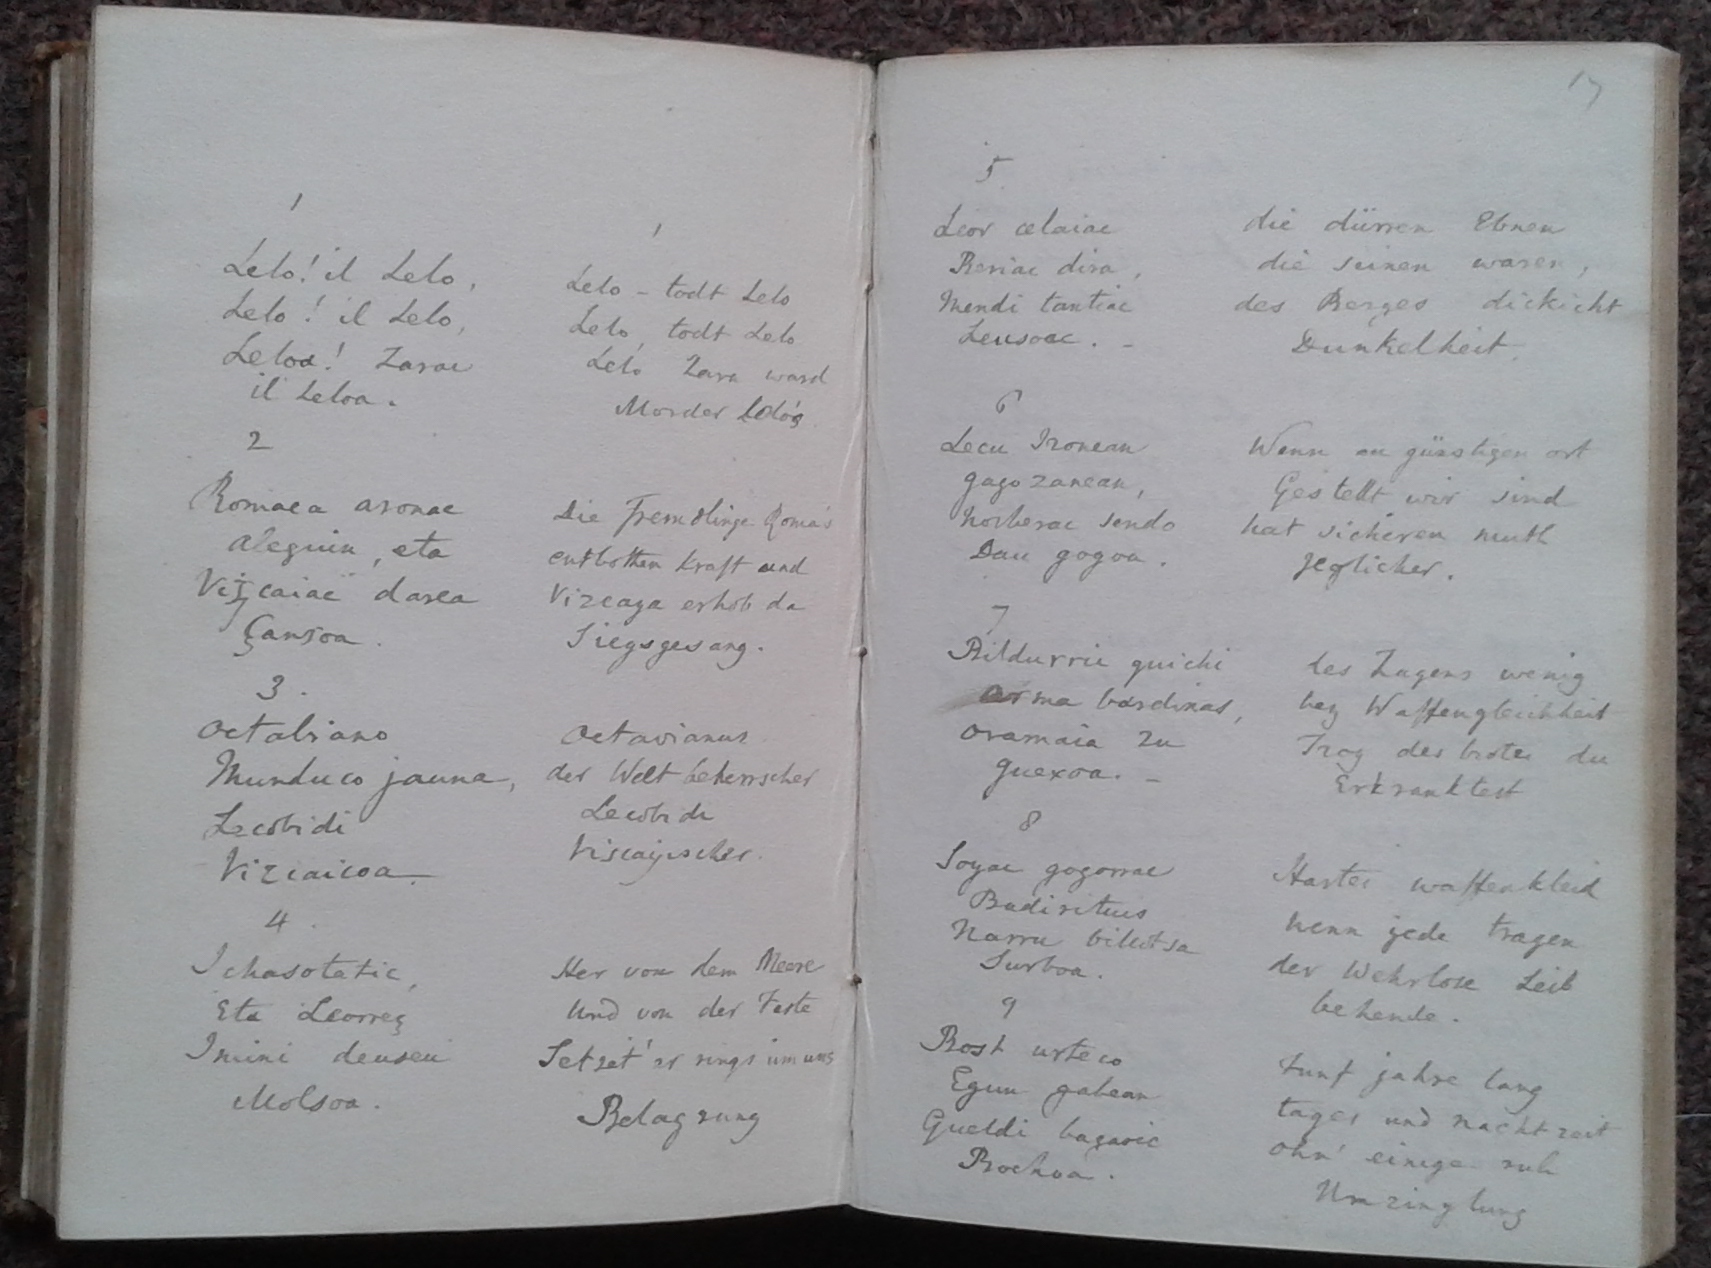 1
Lelo! il Lelo,
Lelo! il Lelo,
Leloa! Zarac
il Leloa.
2
Romaca aronac
aleguin, eta
Vizcaiac darea
Çansoa.
3.
Octabiano
Munduco jauna,
Lecobidi
Vizcaicoa.
4.
Ichasotatic,
Eta Leorreç
Imini deuscu
Molsoa.
1
Lelo – todt Lelo
Lelo, todt Lelo
Lelo Zara ward
Morder Lelo's
Die Fremdlinge Roma's
entbothen Kraft und
Vizcaya erhob da
Siegsgesang.
Octavianus
der Welt beherrscher
Lecobidi
Viscayischer.
Her von dem Meere
Und von der Feste
Setzet' er rings um uns
Belagrung
17
5
Leor celaiac
Beriac dira,
Mendi tantiac
Leusoac. –
6
Lecu Ironean
gago zanean,
Norberac sendo
Dau gogoa.
7
Bildurric guichi
arma bardinas,
oramaia zu
guexoa. –
8
Soyac gogorrac
Badirituis
Narru billotsa
Surboa.
9
Bost urteco
Egun gabean
Gueldi bagaric
Bochoa.
die dürren Ebnen
die seinen waren,
des Berges dickicht
Dunkelheit.
Wenn an günstigen ort
Gestellt wir sind
hat sicheren muth
jeglicher.
des Zagens wenig
bey Waffengleichheit
Trog des brotes du
Erkranktest
Hartes waffenkleid
wenn jede tragen
der Wehrlose Leib
behende.
Funf jahre lang
tages und nachtzeit
ohn' einige ruh
Umzinglung